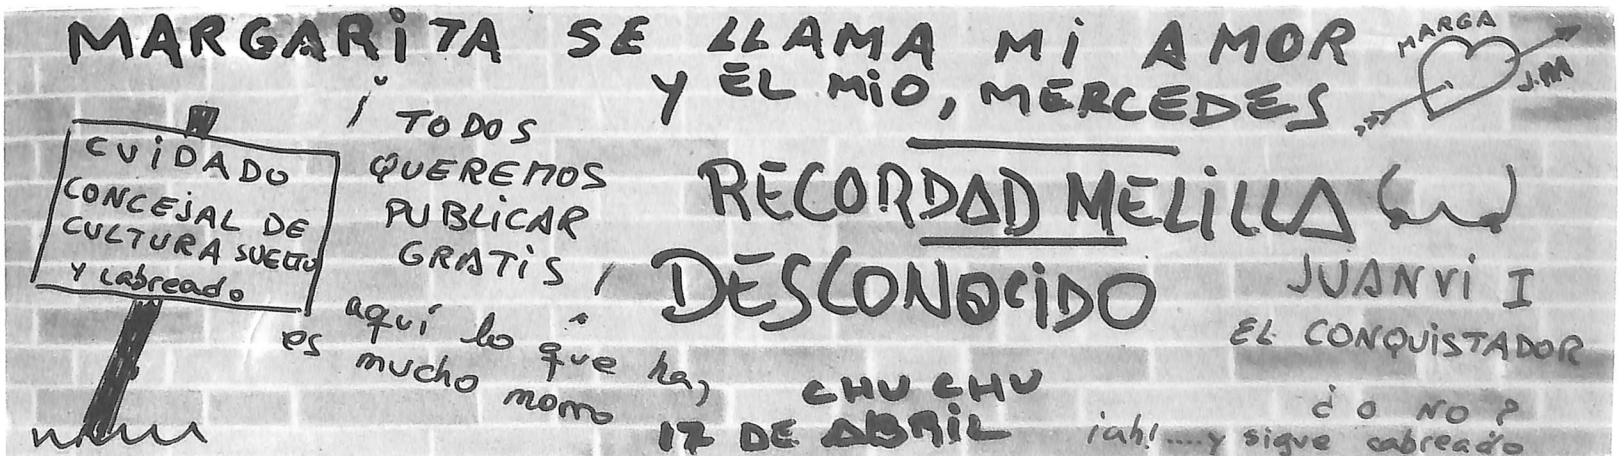 MARGARiTA SE LLAMA Mi AMOR
Y EL MiO, MERCEDES
MARGA
J.M
CUiDADO
CONCEJAL DE
CULTURA SUELTO
Y Cabreado
¡TODOS
QUEREMOS
PUBLICAR
GRATiS!
aquí lo que hay
es mucho morro
RECORDAD MELiLLA
DESCONOCiDO
CHU CHU
17 DE ABRiL
JUANVi I
EL CONQUiSTADOR
¿O NO?
¡ah!....y sigue cabreado